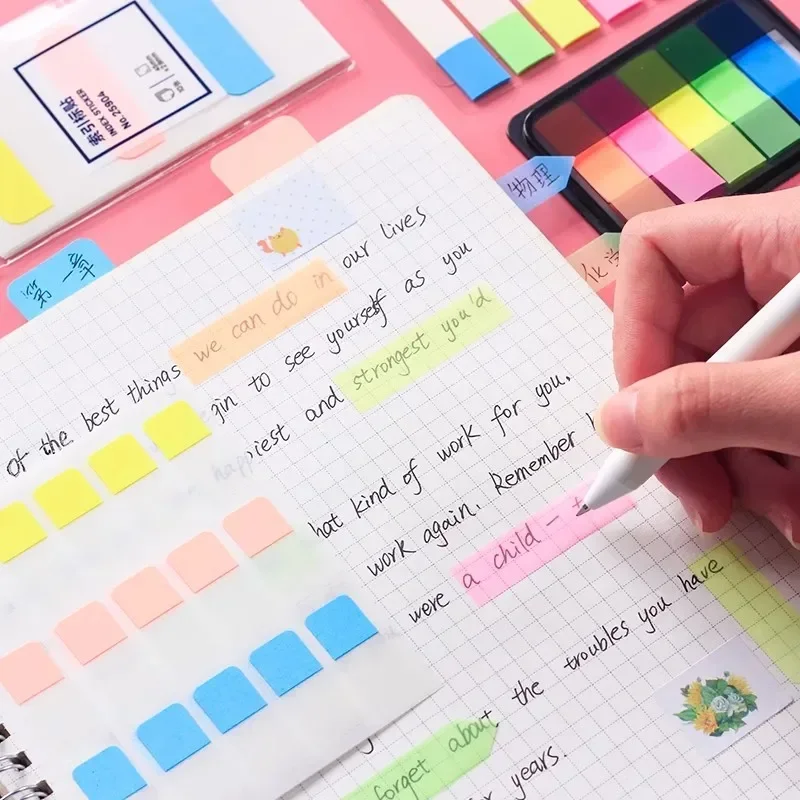 索引标贴
INDEX STICKER
No.25904
第一章
物理
化学
our lives
of the best things we can do in
to see yourself as you
happiest and strongest you'd
hat kind of work for you.
work again. Remember
were a child –
the troubles you have
forget about
years.